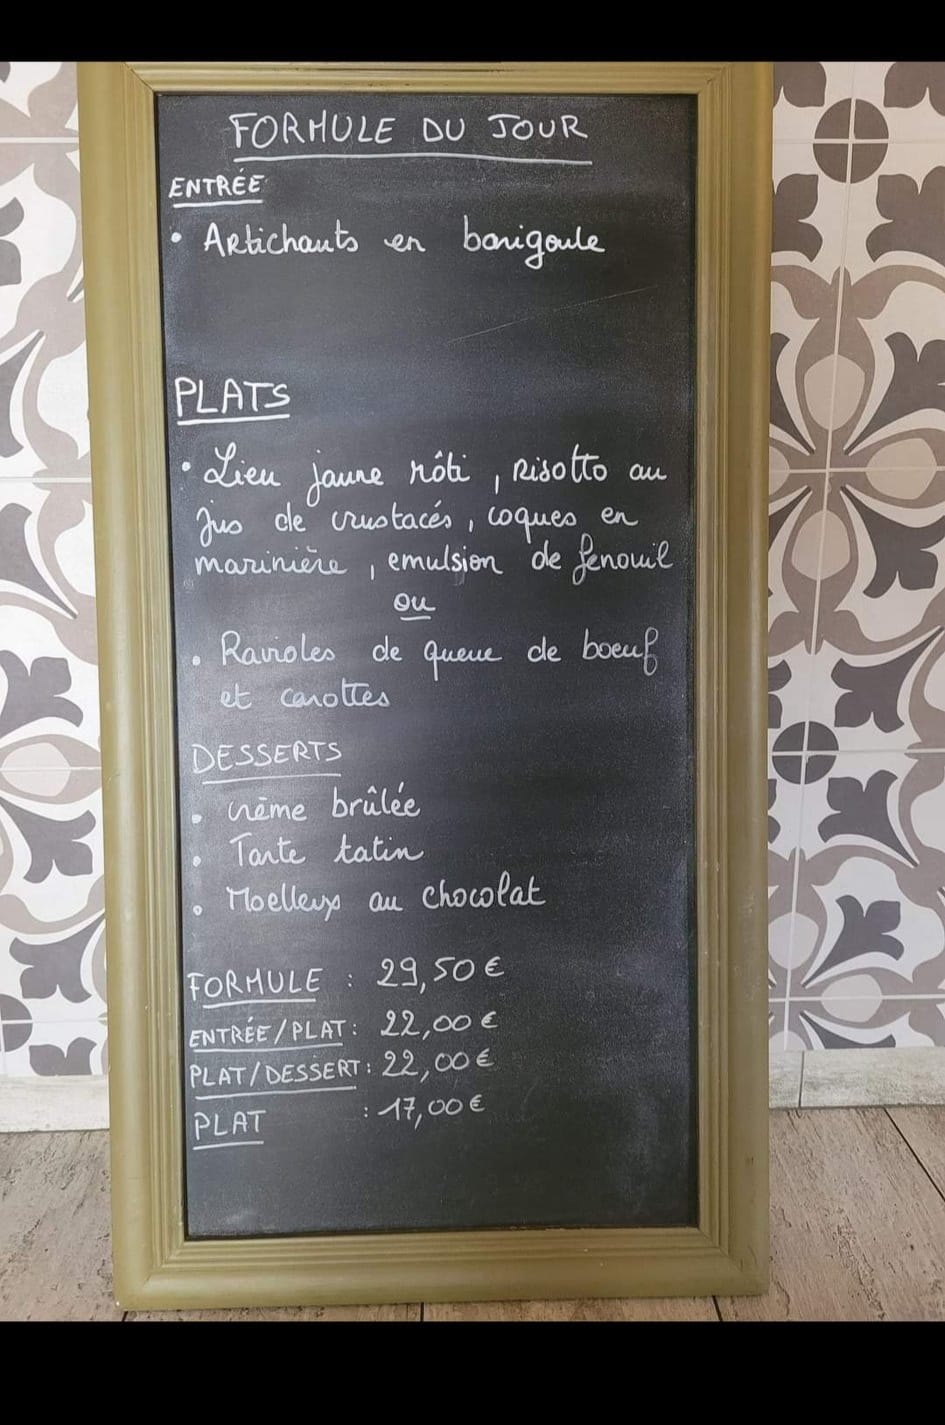 FORMULE DU JOUR
ENTRÉE
• Artichauts en barigoule
PLATS
• Lieu jaune rôti, Risotto au
jus de crustacés, coques en
marinière, emulsion de fenouil
ou
• Ravioles de queue de boeuf
et carottes
DESSERTS
• crème brûlée
• Tarte tatin
• Moelleux au chocolat
FORMULE : 29,50 €
ENTRÉE/PLAT : 22,00 €
PLAT/DESSERT : 22,00 €
PLAT : 17,00 €